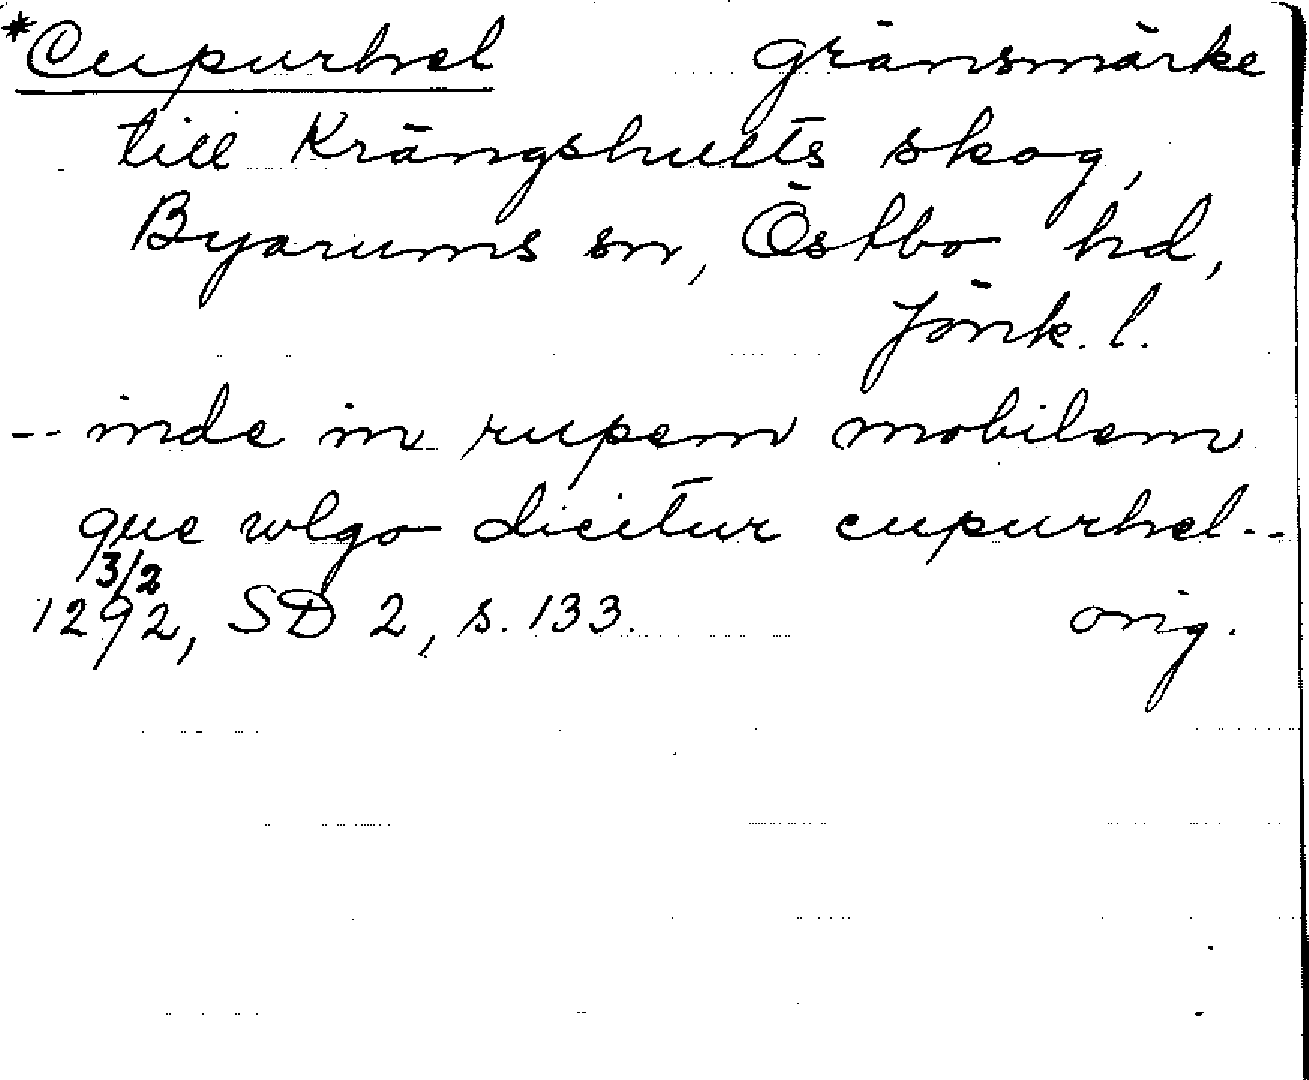 *Cupurhel gränsmärke
till Krängshults skog,
Byarums sn, Östbo hd,
Jönk. l.
-- inde in rupem mobilem
que wlgo dicitur cupurhel--
3/2
1292, SD 2, s. 133. orig.